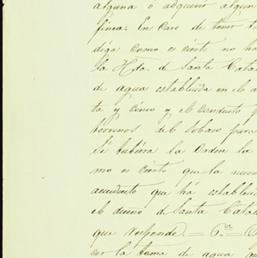 alguna ó adquirió algun
finca. En caso de tener
diga como es cierto no ha
la Hda. de Santa Cata
de agua establecida en el a
ta y cinco y el conducto p
terrenos del lobano para
Si tubiera la Orden la
mo es cierto que la nueva
acueducto que há establec
el dueno de Santa Catas
que responde) = 6ª =
cer la toma de agua que